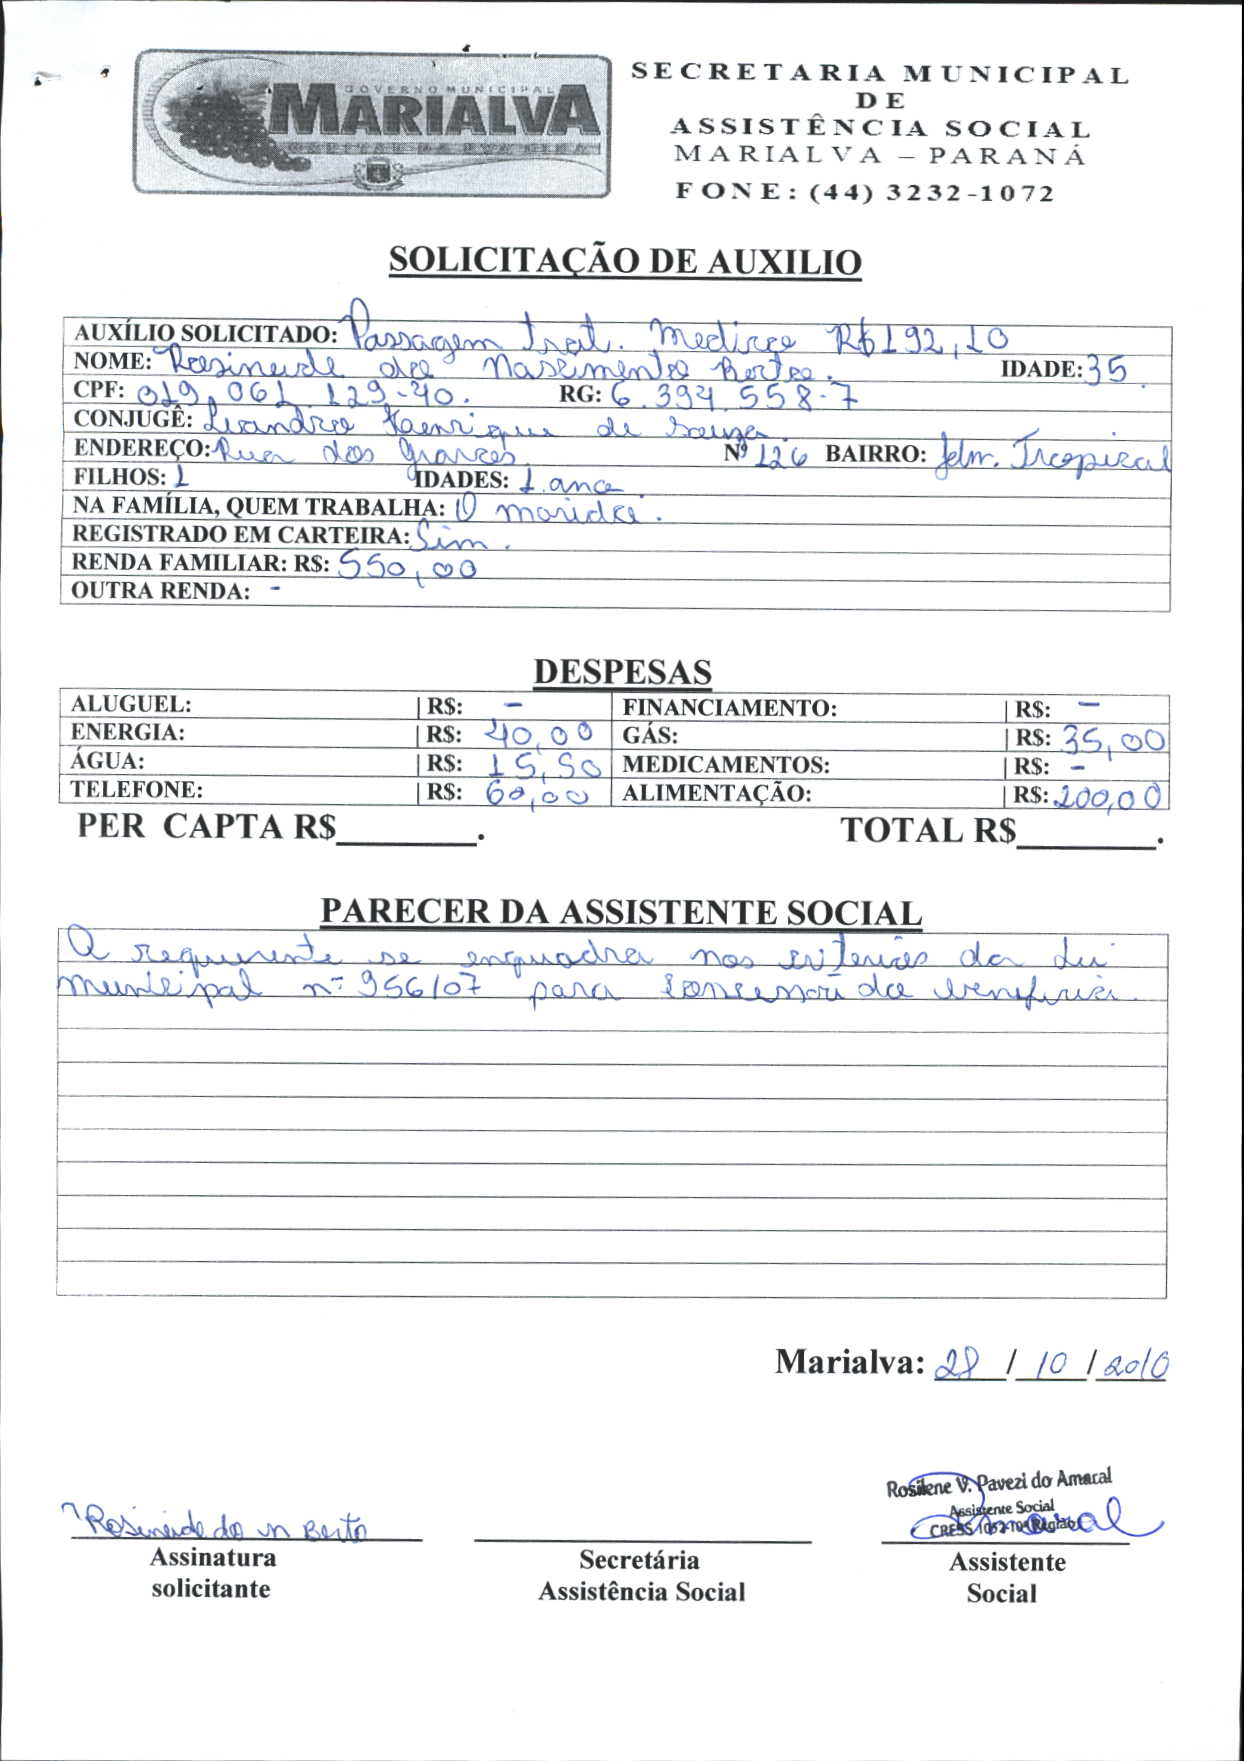 GOVERNO MUNICIPAL
MARIALVA
CAPITAL DA UVA FINA
SECRETARIA MUNICIPAL
DE
ASSISTÊNCIA SOCIAL
MARIALVA – PARANÁ
FONE: (44) 3232-1072
SOLICITAÇÃO DE AUXILIO
AUXÍLIO SOLICITADO: Passagem trat. Medico R$192,10
NOME: Rosineide do Nascimento Berto. IDADE: 35
CPF: 019.061.129-40. RG: 6.394.558-7
CONJUGÊ: Leandro Henrique de Souza.
ENDEREÇO: Rua das Graças Nº 126 BAIRRO: Jdm. Tropical
FILHOS: 1 IDADES: 1 ano
NA FAMÍLIA, QUEM TRABALHA: O marido.
REGISTRADO EM CARTEIRA: Sim.
RENDA FAMILIAR: R$: 550,00
OUTRA RENDA: -
DESPESAS
ALUGUEL: | R$: - FINANCIAMENTO: | R$: -
ENERGIA: | R$: 40,00 GÁS: | R$: 35,00
ÁGUA: | R$: 15,50 MEDICAMENTOS: | R$: -
TELEFONE: | R$: 60,00 ALIMENTAÇÃO: | R$: 200,00
PER CAPTA R$________. TOTAL R$________.
PARECER DA ASSISTENTE SOCIAL
A requerente se enquadra nos criterios da Lei
municipal nº 956/07 para concessão do beneficio
Marialva: 28 / 10 / 2010
Rosilene V. Pavezi do Amaral
Assistente Social
CRESS 1052-10ª Região
Rosineide do N Berto
Assinatura Secretária Assistente
solicitante Assistência Social Social